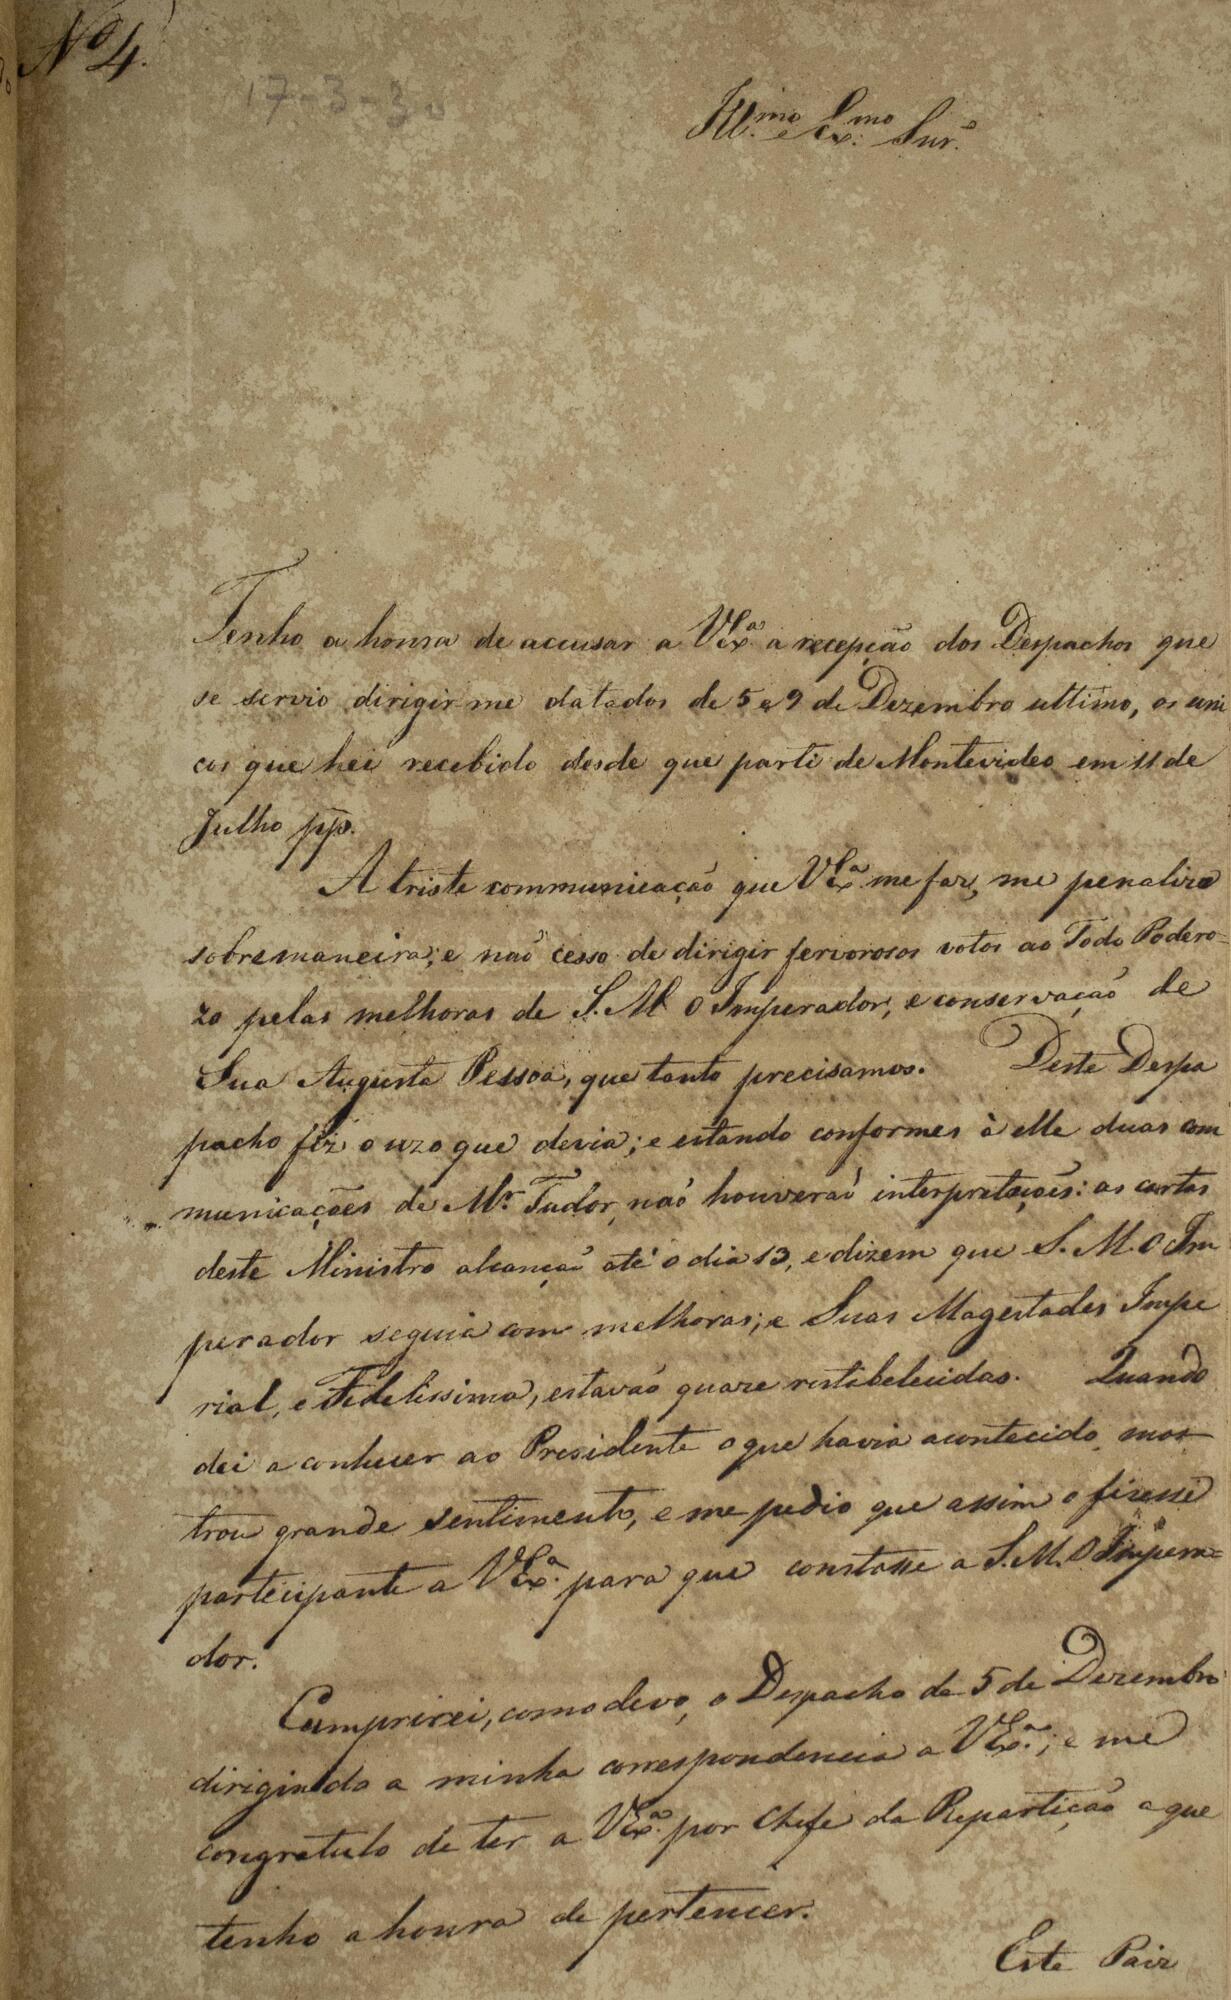 Nº 4.
17-3-30
Ill.mo e Ex.mo Snr.
Tenho a honra de accusar a VEx.a a recepção dos Despachos que
se servio dirigir-me datados de 5 e 9 de Dezembro ultimo, os uni
cos que hei recebido desde que parti de Montevideo em 11 de
Julho pp.
A triste communicação que VEx.a me faz, me penaliza
sobremaneira; e naõ cesso de dirigir fervorosos votos ao Todo Podero-
zo pelas melhoras de S. M. O Imperador, e conservação de
Sua Augusta Pessoa, que tanto precisamos. Deste Despa
pacho fiz o uzo que devia; e estando conformes à elle duas com
municações de Mr. Tudor, naõ houveraõ interpretações: as cartas
deste Ministro alcançaõ até o dia 13, e dizem que S. M. O Im
perador seguia com melhoras; e Suas Magestades Impe
rial, e Fidelissima, estavaõ quaze restabelecidas. Quando
dei a conhecer ao Presidente o que havia acontecido, mos
trou grande sentimento, e me pedio que assim o fizesse
participante a VEx.a para que constasse a S. M. O Impera=
dor.
Cumprirei, como devo, o Despacho de 5 de Dezembro
dirigindo a minha correspondencia a VEx.a; e me
congratulo de ter a VEx.a por Chefe da Repartição a que
tenho a honra de pertencer.
Este Paiz